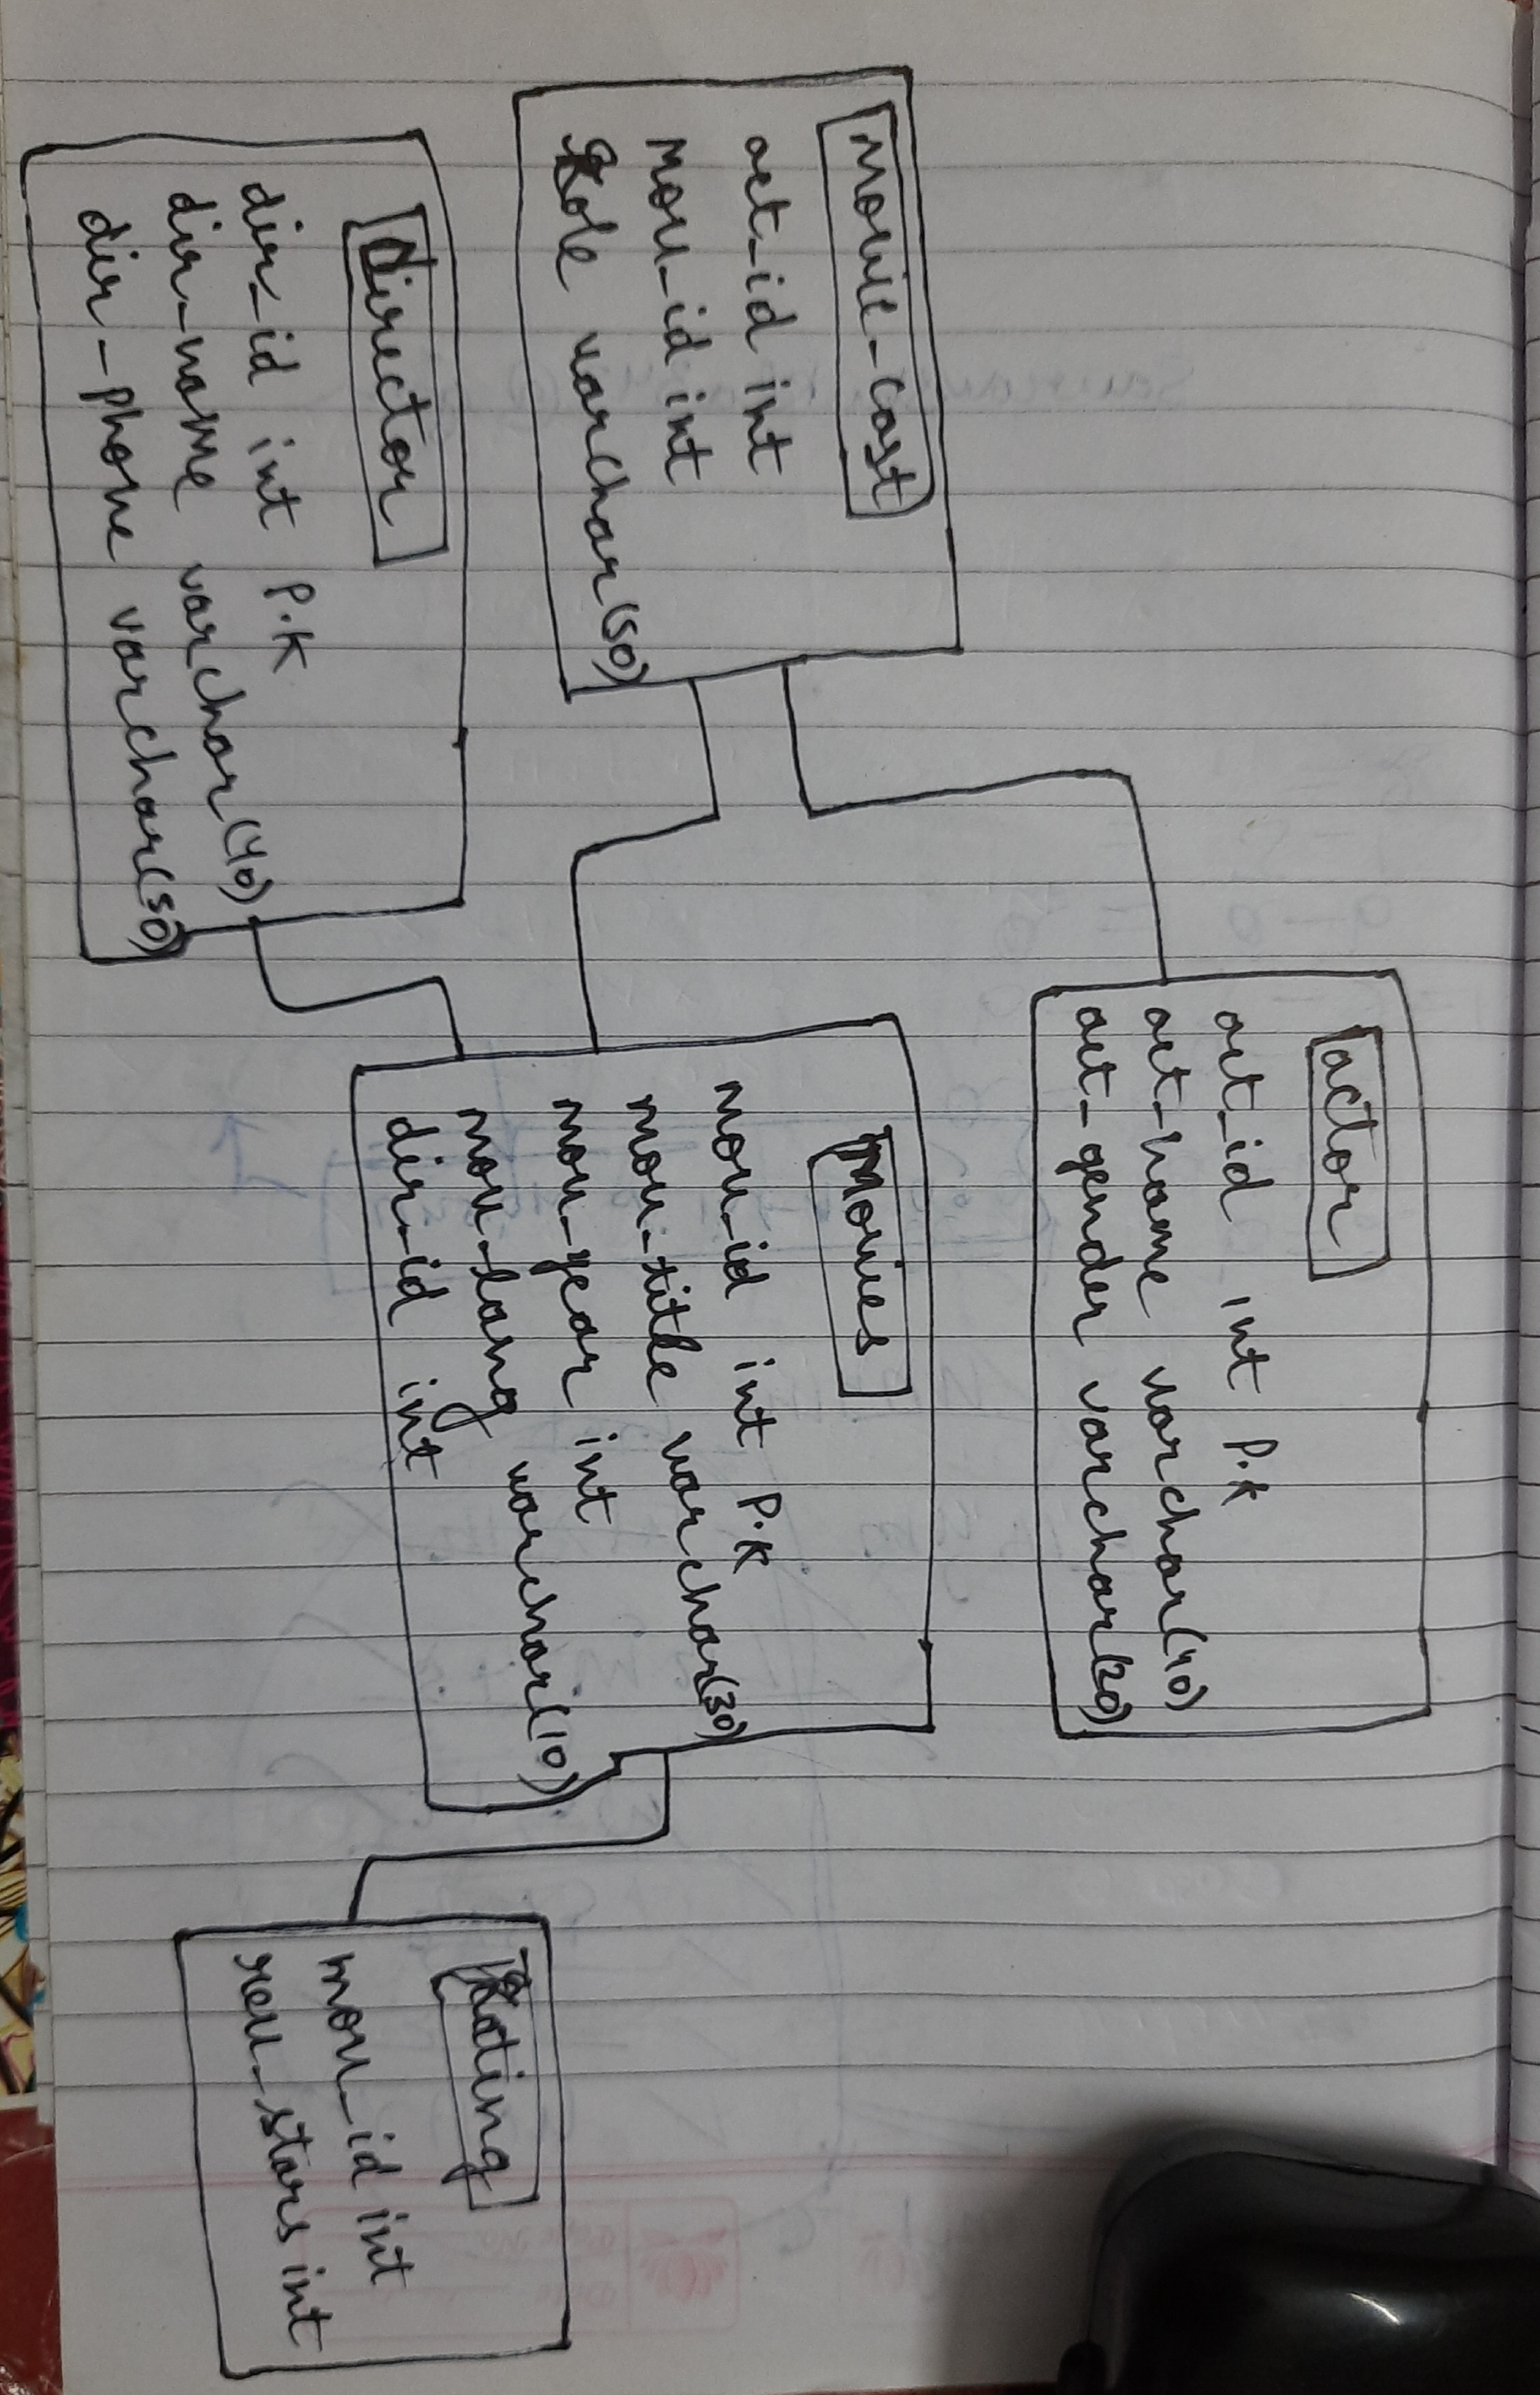 movie-cast
act_id int
mov_id int
Role varchar(50)
actor
act_id int P.K
act-name varchar(40)
act-gender varchar(20)
Director
dir_id int P.K
dir-name varchar(40)
dir-phone varchar(50)
Movies
mov_id int P.K
mov-title varchar(30)
mov-year int
mov-lang varchar(10)
dir-id int
Rating
mov_id int
rev_stars int